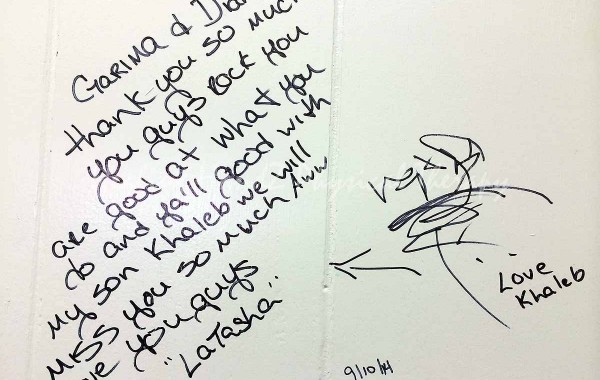 Garima & Dian
thank you so much
you guys Rock you
are good at what you
do and ya'll good with
my son Khaleb we will
miss you so much Aww
you guys
"LaTasha"
Love
Khaleb
9/10/14